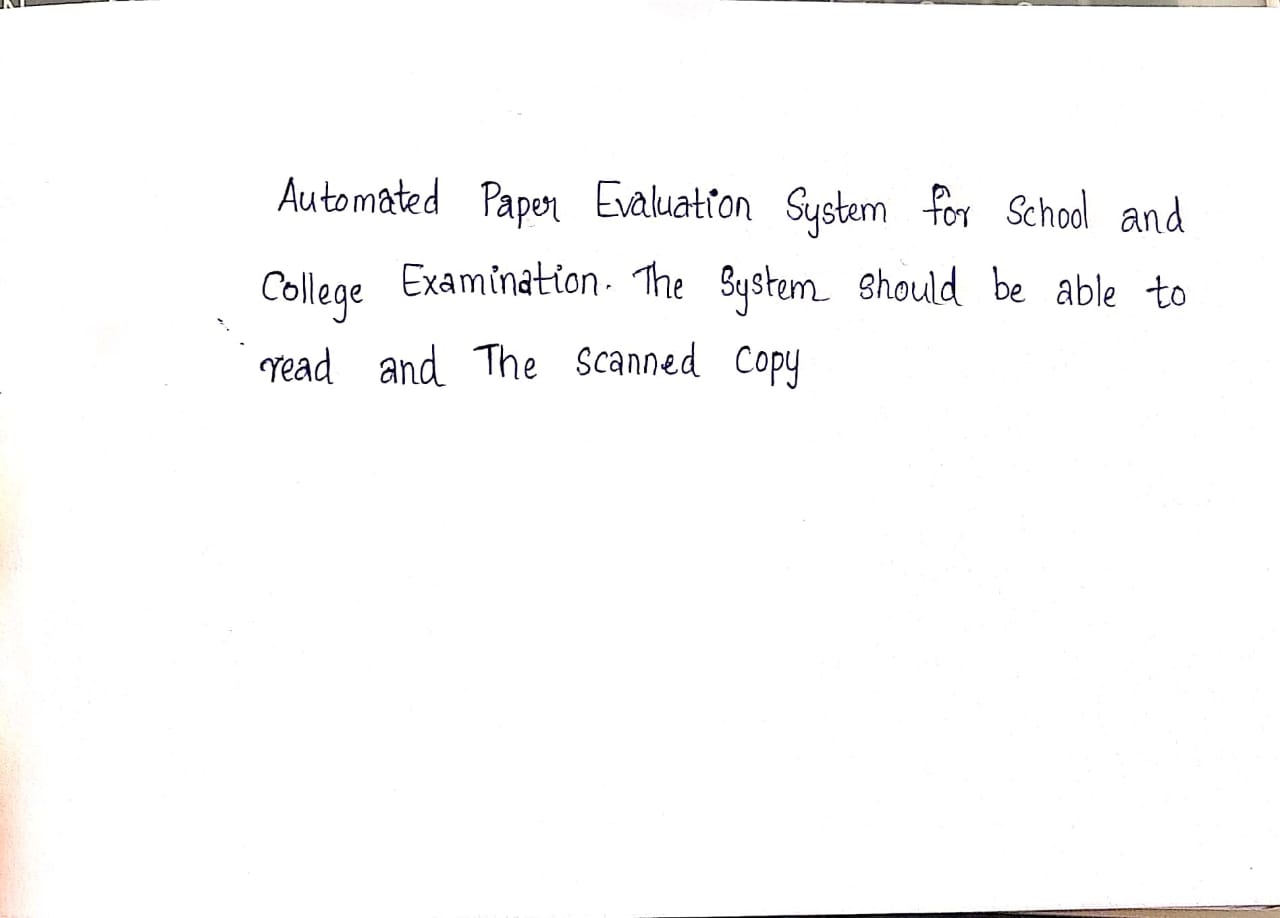 Automated Paper Evaluation System for School and
College Examination. The System should be able to
read and The Scanned Copy